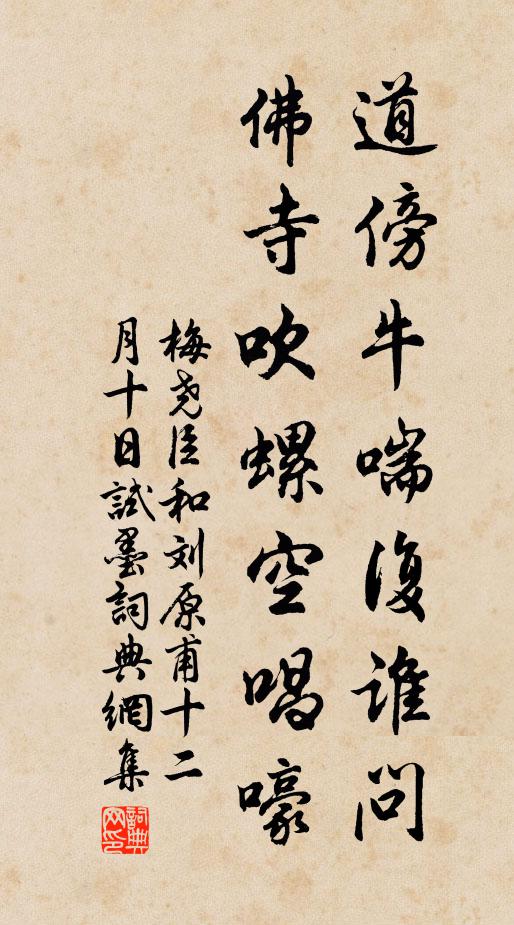 道傍牛喘復谁问
佛寺吹螺空唱嚎
梅尧臣和刘原甫十二
月十日試墨詞典網集
詞典网印